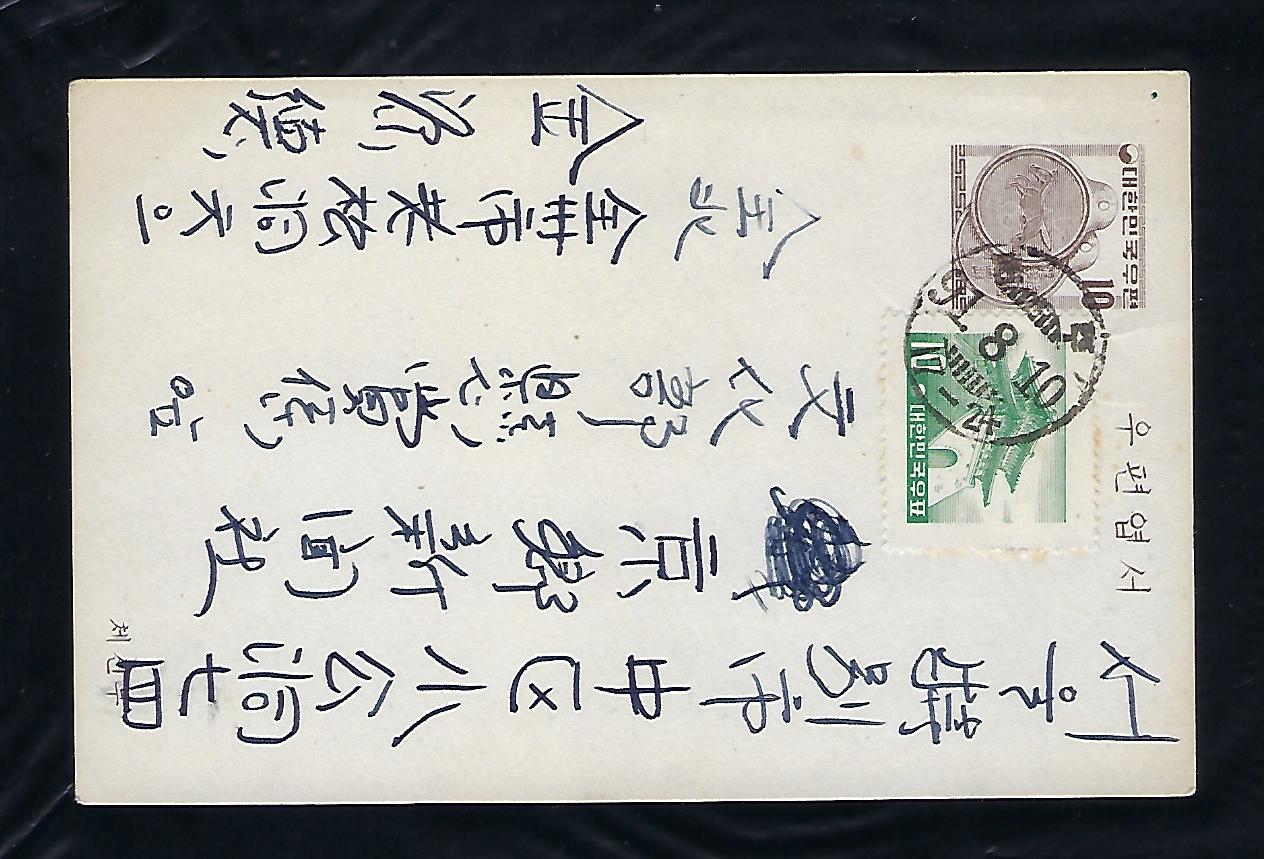 우편엽서
대한민국우편
10
대한민국우표
10
서울特別市中区小公洞七四
京鄕新聞社
文化部 懸賞係 앞
全北 全州市老松洞
金
체신부